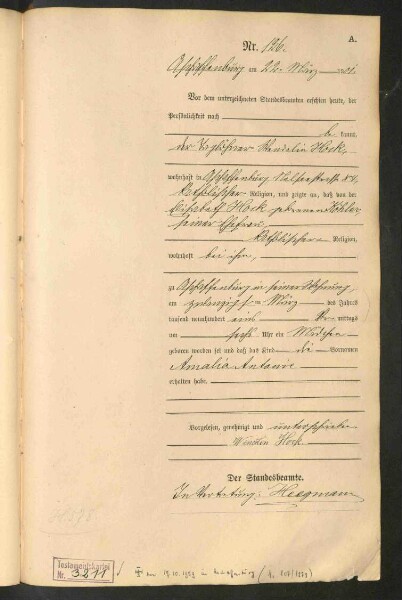 A.
Nr. 126.
Aschaffenburg am 22. März
Vor dem unterzeichneten Standesbeamten erschien heute, der
Persönlichkeit nach
be kannt,
der Wendelin Hock,
wohnhaft in Aschaffenburg
katholischer Religion, und zeigte an, daß von der
Elisabeth Hock geborenen Köhler,
seiner Ehefrau,
katholischer Religion,
wohnhaft bei ihm,
zu Aschaffenburg in seiner Wohnung,
am März des Jahres
tausend neunhundert eins Vor mittags
um sechs Uhr ein Mädchen
geboren worden sei und daß das Kind die Vornamen
Amalia
erhalten habe.
Vorgelesen, genehmigt und unterschrieben
Hock
Der Standesbeamte.
In Vertretung: Heegmann
Testamentskartei
Nr. 3211